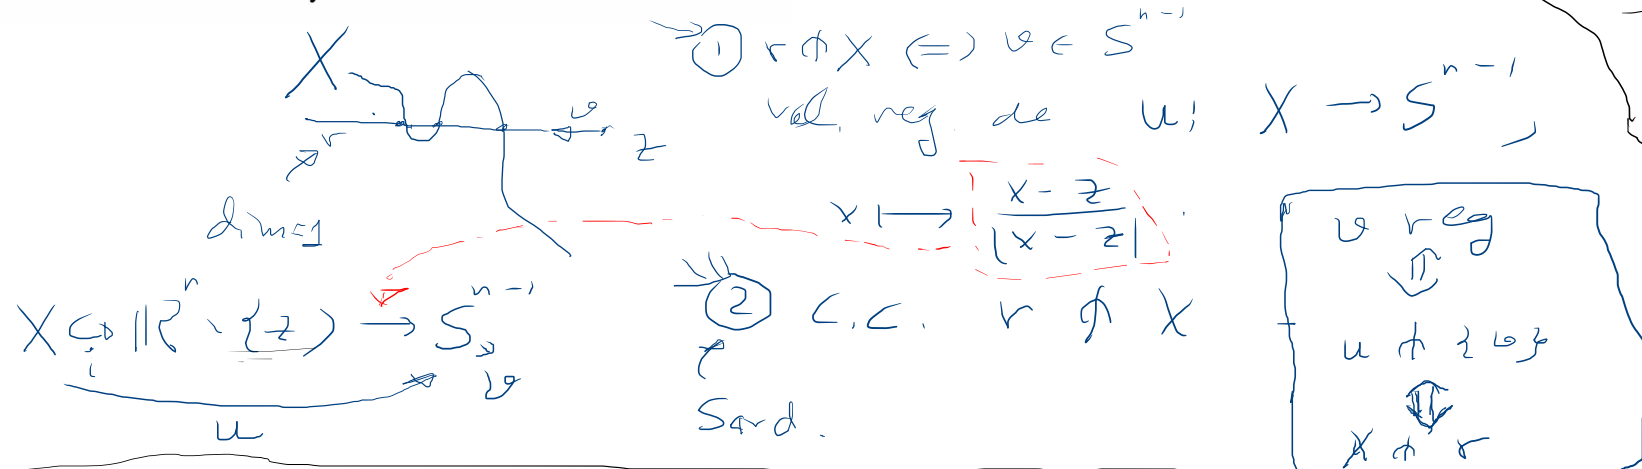 X
r
v
z
dim=1
X ↪ ℝⁿ \ {z} → Sⁿ⁻¹
i
v
u
① r ⋔ X ⟺ v ∈ Sⁿ⁻¹
val. reg. de u: X → Sⁿ⁻¹,
x ↦ (x - z)/|x - z|
② C.C. r ⋔ X
Sard.
v reg
⇕
u ⋔ {v}
⇕
X ⋔ r